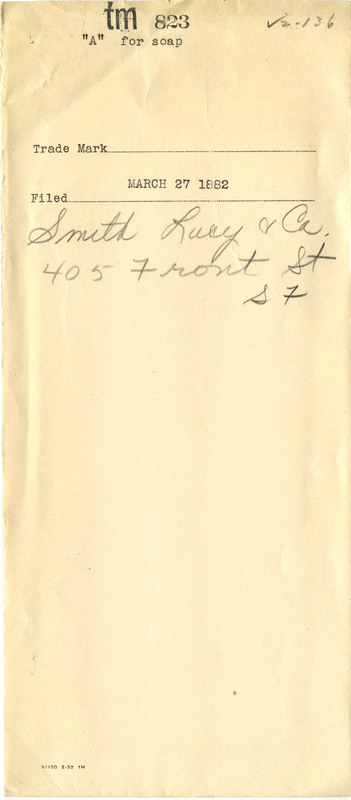 tm 823
"A" for soap
√2-136
Trade Mark
MARCH 27 1882
Filed
Smith Lucy & Co.
405 Front St
S F